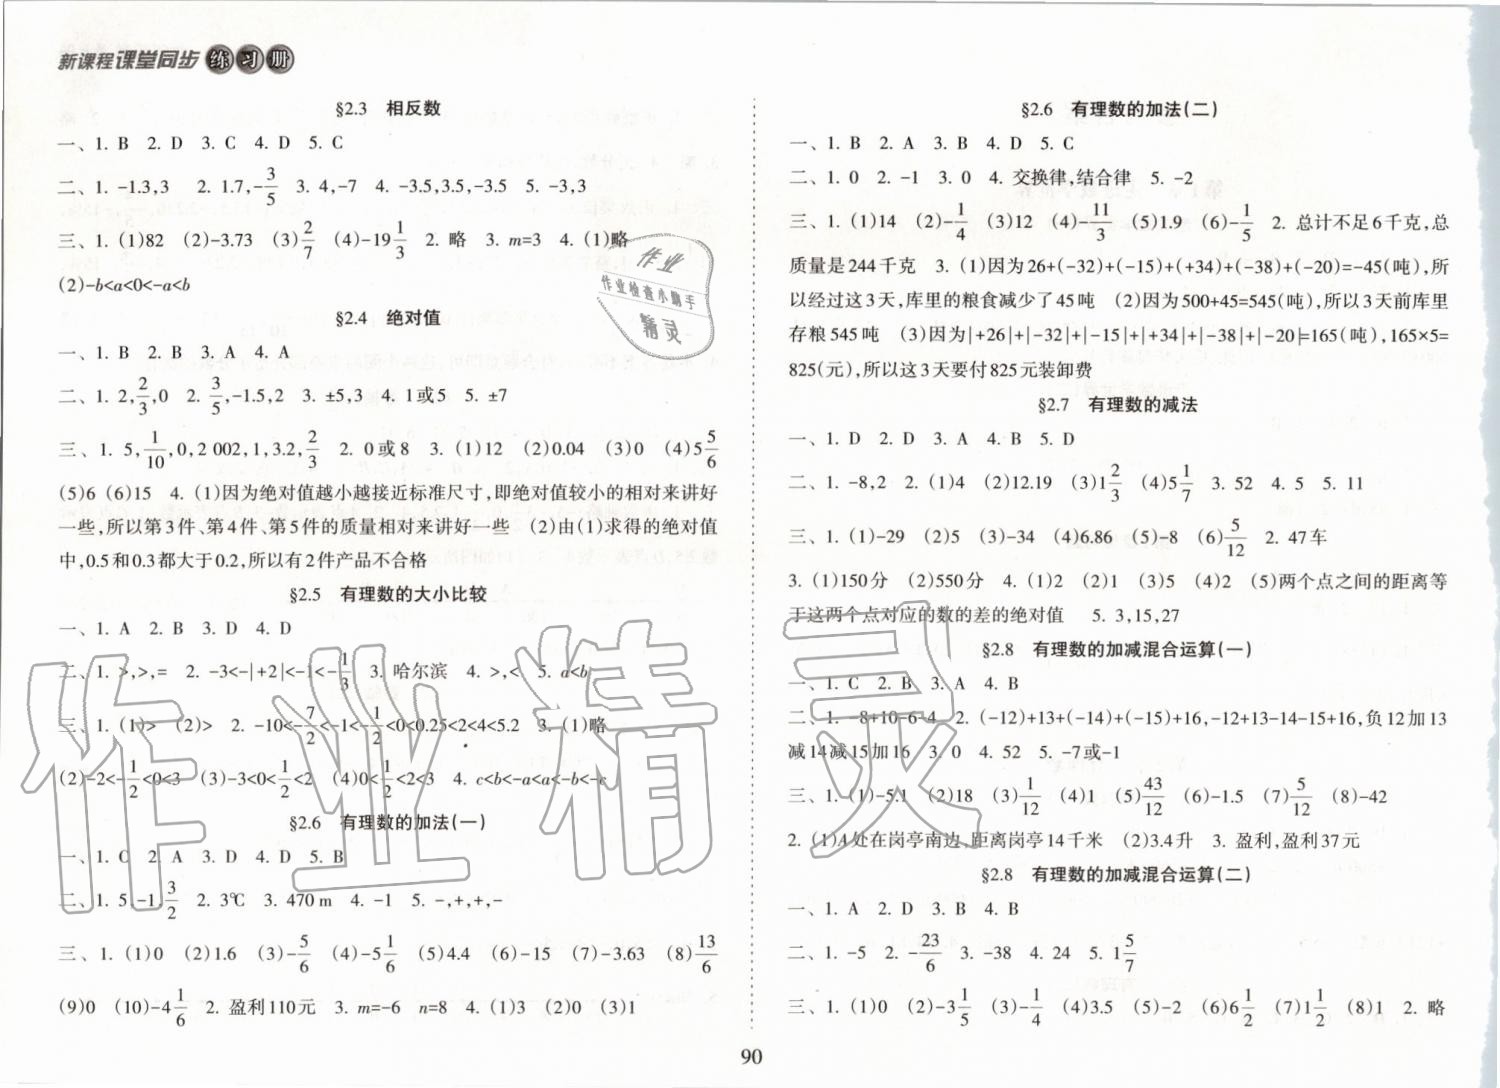 新课程课堂同步练习册
§2.3 相反数
一、1. B 2. D 3. C 4. D 5. C
二、1. -1.3,3 2. 1.7,-3/5 3. 4,-7 4. -3.5,3.5,-3.5 5. -3,3
三、1. (1)82 (2)-3.73 (3)2/7 (4)-19 1/3 2. 略 3. m=3 4. (1)略
(2)-b<a<0<-a<b
§2.4 绝对值
一、1. B 2. B 3. A 4. A
二、1. 2,2/3,0 2. 3/5,-1.5,2 3. ±5,3 4. 1或5 5. ±7
三、1. 5,1/10,0,2 002,1,3.2,2/3 2. 0或8 3. (1)12 (2)0.04 (3)0 (4)5 5/6
(5)6 (6)15 4. (1)因为绝对值越小越接近标准尺寸,即绝对值较小的相对来讲好
一些,所以第3件、第4件、第5件的质量相对来讲好一些 (2)由(1)求得的绝对值
中,0.5和0.3都大于0.2,所以有2件产品不合格
§2.5 有理数的大小比较
一、1. A 2. B 3. D 4. D
二、1. >,>,= 2. -3<-|+2|<-1<-1/3 3. 哈尔滨 4. >,< 5. a<b
三、1. (1)> (2)> 2. -10<-7/2<-1<-1/2<0<0.25<2<4<5.2 3. (1)略
(2)-2<-1/2<0<3 (3)-3<0<1/2<2 (4)0<1/2<2<3 4. c<b<-a<a<-b<-c
§2.6 有理数的加法(一)
一、1. C 2. A 3. D 4. D 5. B
二、1. 5,-1,3/2 2. 3℃ 3. 470 m 4. -1 5. -,+,+,-
三、1. (1)0 (2)1.6 (3)-5/6 (4)-5 1/6 (5)4.4 (6)-15 (7)-3.63 (8)13/6
(9)0 (10)-4 1/6 2. 盈利110元 3. m=-6 n=8 4. (1)3 (2)0 (3)1
§2.6 有理数的加法(二)
一、1. B 2. A 3. B 4. D 5. C
二、1. 0 2. -1 3. 0 4. 交换律,结合律 5. -2
三、1. (1)14 (2)-1/4 (3)12 (4)-11/3 (5)1.9 (6)-1/5 2. 总计不足6千克,总
质量是244千克 3. (1)因为26+(-32)+(-15)+(+34)+(-38)+(-20)=-45(吨),所
以经过这3天,库里的粮食减少了45吨 (2)因为500+45=545(吨),所以3天前库里
存粮545吨 (3)因为|+26|+|-32|+|-15|+|+34|+|-38|+|-20|=165(吨),165×5=
825(元),所以这3天要付825元装卸费
§2.7 有理数的减法
一、1. D 2. D 3. A 4. B 5. D
二、1. -8,2 2. (1)4 (2)12.19 (3)1 2/3 (4)5 1/7 3. 52 4. 5 5. 11
三、1. (1)-29 (2)5 (3)-34 (4)6.86 (5)-8 (6)5/12 2. 47车
3. (1)150分 (2)550分 4. (1)2 (2)1 (3)5 (4)2 (5)两个点之间的距离等
于这两个点对应的数的差的绝对值 5. 3,15,27
§2.8 有理数的加减混合运算(一)
一、1. C 2. B 3. A 4. B
二、1. -8+10-6-4 2. (-12)+13+(-14)+(-15)+16,-12+13-14-15+16,负12加13
减14减15加16 3. 0 4. 52 5. -7或-1
三、1. (1)-5.1 (2)18 (3)1/12 (4)1 (5)43/12 (6)-1.5 (7)5/12 (8)-42
2. (1)A处在岗亭南边,距离岗亭14千米 (2)3.4升 3. 盈利,盈利37元
§2.8 有理数的加减混合运算(二)
一、1. A 2. D 3. B 4. B
二、1. -5 2. -23/6 3. -38 4. 24 5. 1 5/7
三、1. (1)0 (2)-3 1/5 (3)-1/4 (4)3.5 (5)-2 (6)6 1/2 (7)1 1/2 (8)1 2. 略
90
作业
作业检查小助手
精灵
作业精灵